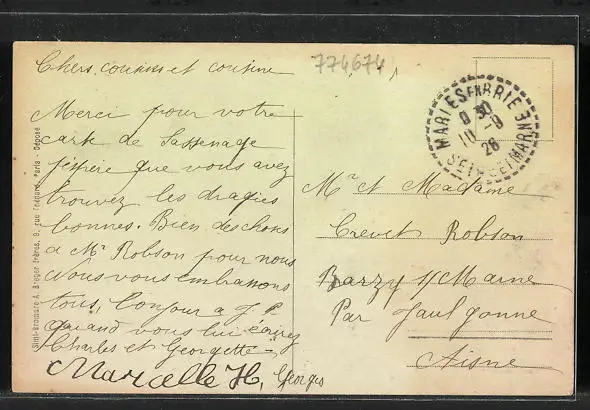 Chers cousins et cousine
Merci pour votre
carte de Sassenage
j'espère que vous avez
trouvez les dragées
bonnes. Bien des choses
a Mr Robson pour nous
Nous vous embrassons
tous, bonjour a
quand vous lui écrirez
Charles et Georgette
Marcelle H, Georges
774674
MARLES EN BRIE
30
10 - 8
26
SEINE ET MARNE
Mr et Madame
Crevet Robson
Barzy s/ Marne
Par Jaulgonne
Aisne
Simi-Bromure A. Breger frères, 9, rue Thénard, Paris - Déposé